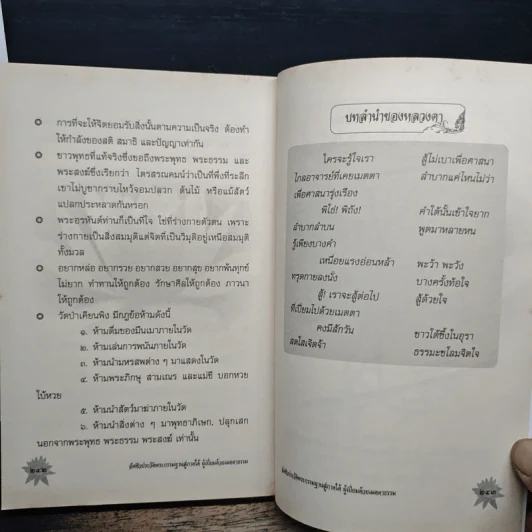 การที่จะให้จิตยอมรับสิ่งนั้นตามความเป็นจริง ต้องทำ
ให้กำลังของสติ สมาธิ และปัญญาเท่ากัน
ชาวพุทธที่แท้จริงซึ่งขอถึงพระพุทธ พระธรรม และ
พระสงฆ์ซึ่งเรียกว่า ไตรสรณคมน์ว่าเป็นที่พึ่งที่ระลึก
เขาไม่บูชากราบไหว้จอมปลวก ต้นไม้ หรือแม้สัตว์
แปลกประหลาดกันหรอก
พระอรหันต์ท่านก็เป็นที่ใจ ใช่ที่ร่างกายตัวตน เพราะ
ร่างกายเป็นสิ่งสมมุติแต่จิตที่เป็นวิมุติอยู่เหนือสมมุติ
ทั้งมวล
อยากหล่อ อยากรวย อยากสวย อยากสุข อยากพ้นทุกข์
ไม่ยาก ทำทานให้ถูกต้อง รักษาศีลให้ถูกต้อง ภาวนา
ให้ถูกต้อง
วัดป่าเคียนพิง มีกฎข้อห้ามดังนี้
๑. ห้ามดื่มของมึนเมาภายในวัด
๒. ห้ามเล่นการพนันภายในวัด
๓. ห้ามนำมหรสพต่าง ๆ มาแสดงในวัด
๔. ห้ามพระภิกษุ สามเณร และแม่ชี บอกหวย
ใบ้หวย
๕. ห้ามนำสัตว์มาฆ่าภายในวัด
๖. ห้ามนำสิ่งต่าง ๆ มาพุทธาภิเษก, ปลุกเสก
นอกจากพระพุทธ พระธรรม พระสงฆ์ เท่านั้น
บทลำนำของหลวงตา
ใครจะรู้ใจเรา สู้ไม่เบาเพื่อศาสนา
ไกลอาจารย์ที่เคยเมตตา ลำบากแค่ไหนไม่ว่า
เพื่อศาสนารุ่งเรือง
พิโธ่! พิถัง! คำใต้นั้นเข้าใจยาก
ลำบากลำบน พูดมาหลายหน
รู้เพียงบางคำ
เหนื่อยแรงอ่อนหล้า พะว้า พะวัง
ทรุดกายลงนั่ง บางครั้งท้อใจ
สู้! เราจะสู้ต่อไป สู้ด้วยใจ
ที่เปี่ยมไปด้วยเมตตา
คงมีสักวัน ชาวใต้ซึ้งในอุรา
สดใสเจิดจ้า ธรรมะชโลมจิตใจ